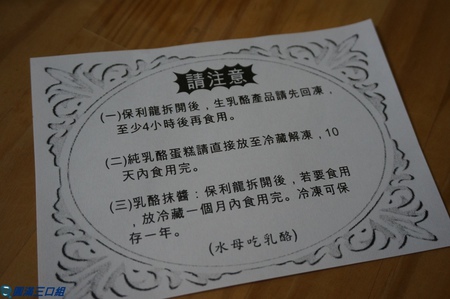 請注意
(一)保利龍拆開後，生乳酪產品請先回凍，
至少4小時後再食用。
(二)純乳酪蛋糕請直接放至冷藏解凍，10
天內食用完。
(三)乳酪抹醬：保利龍拆開後，若要食用
，放冷藏一個月內食用完。冷凍可保
存一年。
(水母吃乳酪)
三口組